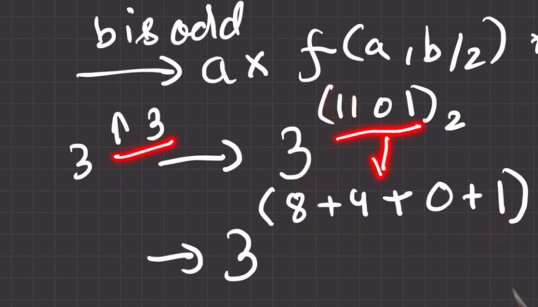 b is odd
→ a × f(a, b/2) *
3^13 → 3^(1101)₂
(8+4+0+1)
→ 3